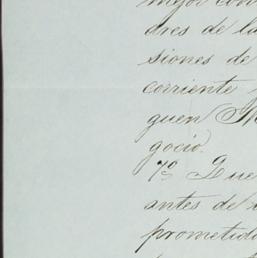 mejor con
dres de la
siones de
corriente
guen
gocio.
7º Que
antes de
prometido